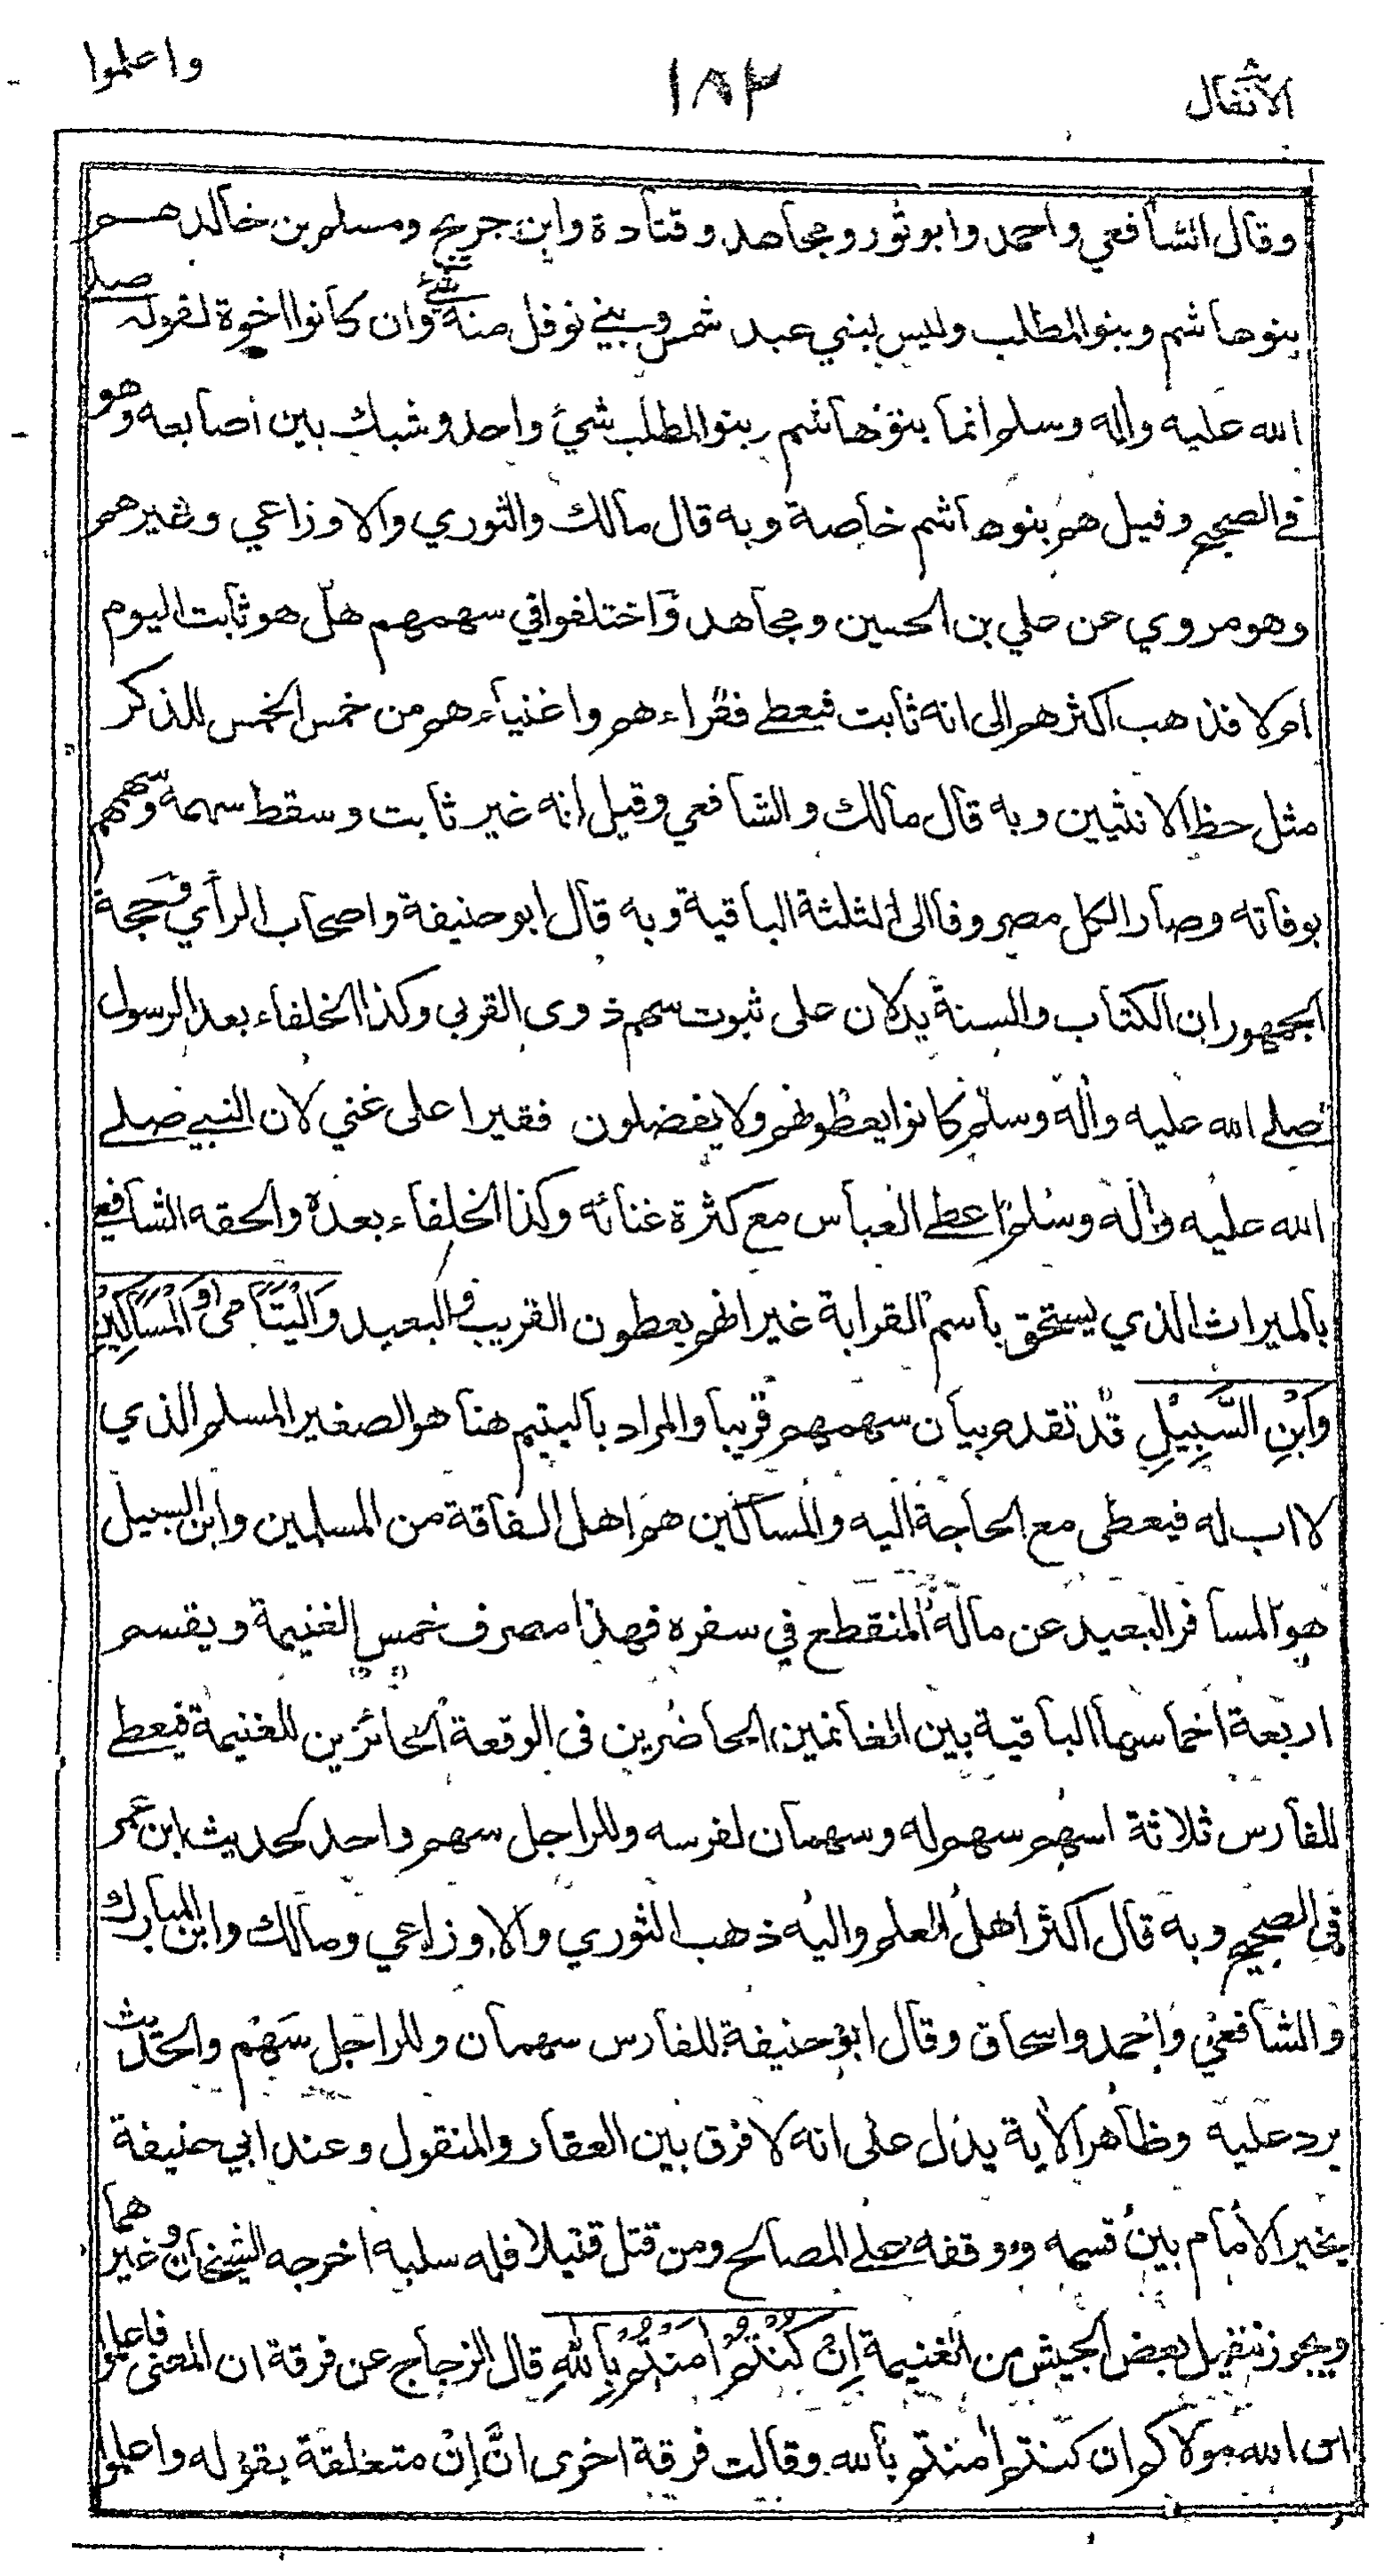 الانفال
١٨٣
واعلموا
وقال الشافعي واحمد وابوثور ومجاهد وقتادة وابن جريج ومسلم بن خالد هم
بنوهاشم وبنو المطلب وليس لبني عبد شمس وبني نوفل منه شيء وان كانوا اخوة لقوله صلے
الله عليه واله وسلم انما بنوهاشم وبنو المطلب شيء واحد وشبك بين اصابعه وهو
في الصحيح وقيل هم بنوهاشم خاصة وبه قال مالك والثوري والاوزاعي وغيرهم
وهو مروي عن علي بن الحسين ومجاهد واختلفوا في سهمهم هل هو ثابت اليوم
ام لا فذهب اكثرهم الى انه ثابت فيعطے فقراءهم واغنياءهم من خمس الخمس للذكر
مثل حظ الانثيين وبه قال مالك والشافعي وقيل انه غير ثابت وسقط سهمه وسهمهم
بوفاته وصار الكل مصروفا الى الثلثة الباقية وبه قال ابوحنيفة واصحاب الرأي وحجة
الجمهور ان الكتاب والسنة يدلان على ثبوت سهم ذوى القربى وكذا الخلفاء بعد الرسول
صلے الله عليه واله وسلم كانوا يعطونهم ولا يفضلون فقيرا على غني لان النبي صلے
الله عليه واله وسلم اعطے العباس مع كثرة غنائه وكذا الخلفاء بعده والحقه الشافعي
بالميراث الذي يستحق باسم القرابة غير انهم يعطون القريب والبعيد وَالْيَتَامٰى وَالْمَسَاكِيْنِ
وَابْنِ السَّبِيْلِ قد تقدم بيان سهمهم قريبا والمراد باليتيم هنا هو الصغير المسلم الذي
لا اب له فيعطى مع الحاجة اليه والمساكين هم اهل الفاقة من المسلمين وابن السبيل
هو المسافر البعيد عن ماله المنقطع في سفره فهذا مصرف خمس الغنيمة ويقسم
اربعة اخماسها الباقية بين الغانمين الحاضرين في الوقعة الحائزين للغنيمة فيعطے
للفارس ثلاثة اسهم سهم له وسهمان لفرسه وللراجل سهم واحد لحديث ابن عمر
في الصحيح وبه قال اكثر اهل العلم واليه ذهب الثوري والاوزاعي ومالك وابن المبارك
والشافعي واحمد واسحاق وقال ابوحنيفة للفارس سهمان وللراجل سَهْم والحديث
يرد عليه وظاهر الأية يدل على انه لا فرق بين العقار والمنقول وعند ابي حنيفة
يخير الامام بين قسمه ووقفه علے المصالح ومن قتل قتيلا فله سلبه اخرجه الشيخان وغيرهما
ويجوز تنفيل بعض الجيش من الغنيمة اِنْ كُنْتُمْ اٰمَنْتُمْ بِاللّٰهِ قال الزجاج عن فرقة ان المعنى فاعلموا
ان الله مولاكم ان كنتم اٰمنتم بالله وقالت فرقة اخرى انَّ اِنْ متعلقة بقوله واعلموا